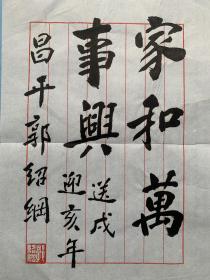 家和萬
事興
送戌
迎亥年
昌平郭紹綱